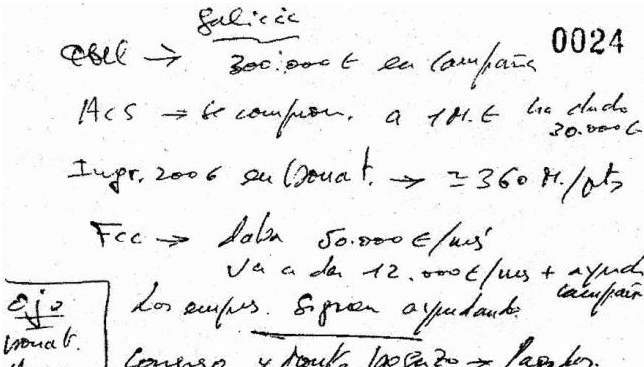 Galicia
0024
OBEL → 300.000 € en campaña
ACS → se comprom. a 1 M. € ha dado
30.000 €
Ingr. 2006 en Donat. → ≃ 360 M./pts
FCC → daba 50.000 €/mes
Va a dar 12.000 €/mes + ayuda
campaña
Ojo
Donat.
Los empres. siguen ayudando